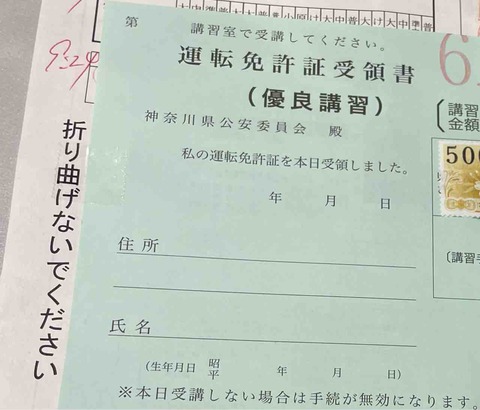 第
講習室で受講してください。
運転免許証受領書
(優良講習)
神奈川県公安委員会 殿
私の運転免許証を本日受領しました。
年 月 日
住所
氏名
(生年月日 昭 平 年 月 日)
※本日受講しない場合は手続が無効になります。
折り曲げないでください
6
講習
金額
500
(講習手